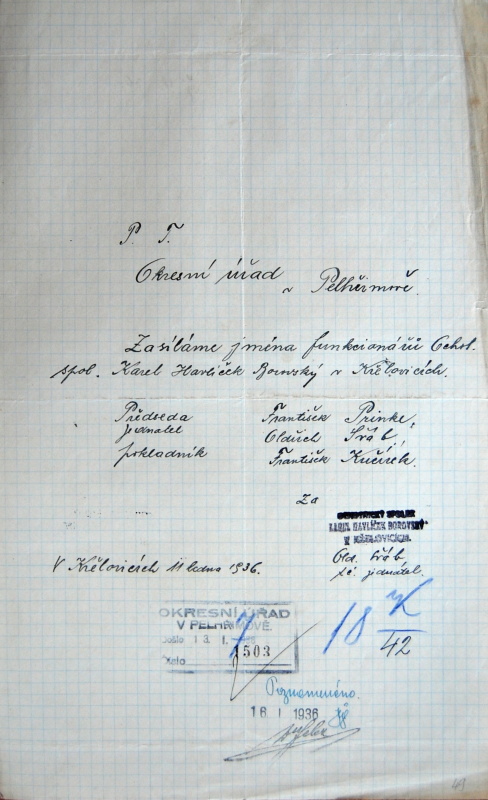 P. T.
Okresní úřad
v Pelhřimově.
Zasíláme jména funkcionářů Ochot.
spol. Karel Havlíček Borovský v Křelovicích.
Předseda František Prinke,
Jednatel Oldřich Šváb,
pokladník František Kučírek.
Za
OCHOTNICKÝ SPOLEK
KAREL HAVLÍČEK BOROVSKÝ
V KŘELOVICÍCH.
V Křelovicích 11 ledna 1936.
Old. Šváb
jednatel.
OKRESNÍ ÚŘAD
V PELHŘIMOVĚ.
Došlo 13 I. 1936
Číslo 1503
18 K
42
Poznamenáno.
16 I 1936